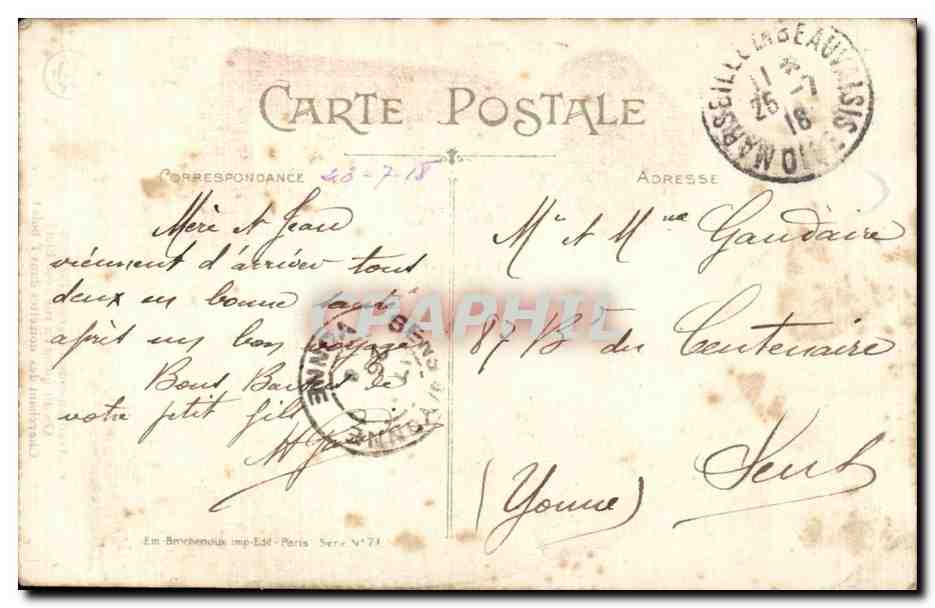 CARTE POSTALE
CORRESPONDANCE
23-7-18
ADRESSE
MARSEILLE EN BEAUVAISIS
11 25 -7 18
OISE
Mère et Jean
viennent d'arriver tous
deux en bonne santé
après un bon voyage
Bons Baisers de
votre petit fils
Mr et Mme Gaudaire
87 Bd du Centenaire
Sens
(Yonne)
SENS
YONNE
CPAPHIL
Em. Brocherioux Imp-Edit - Paris Serie N° 71